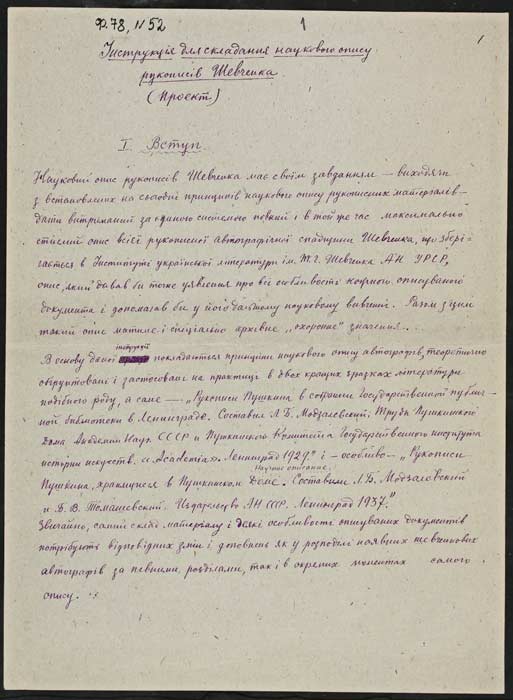 Ф. 78, № 52
1
1
Інструкція для складання наукового опису
рукописів Шевченка
(Проєкт)
I. Вступ
Науковий опис рукописів Шевченка має своїм завданням — виходячи
з встановлених на сьогодні принципів наукового опису рукописних матеріалів —
дати витриманий за єдиною системою повний і в той же час максимально
стислий опис всієї рукописної автографічної спадщини Шевченка, що збері-
гається в Інституті української літератури ім. Т. Г. Шевченка АН УРСР,
опис, який давав би точне уявлення про всі особливості кожного описуваного
документа і допомагав би у його дальшому науковому вивченні. Разом з цим
такий опис матиме і спеціально архівне „охоронне" значення.
В основу даної інструкції покладаються принципи наукового опису автографів, теоретично
обґрунтовані і застосовані на практиці в двох кращих зразках літератури
подібного роду, а саме — „Рукописи Пушкина в собрании Государственной публич-
ной библиотеки в Ленинграде. Составил Л. Б. Модзалевский. Труды Пушкинского
Дома Академии Наук СССР и Пушкинского Комитета Государственного института
истории искусств. „Academia". Ленинград 1929" і — особливо — „Рукописи
Пушкина, хранящиеся в Пушкинском Доме. Научное описание. Составили Л. Б. Модзалевский
и Б. В. Томашевский. Издательство АН СССР. Ленинград 1937."
Звичайно, самий склад матеріалу і деякі особливості описуваних документів
потребують відповідних змін і доповнень як у розподілі наявних шевченкових
автографів за певними розділами, так і в окремих моментах самого
опису.